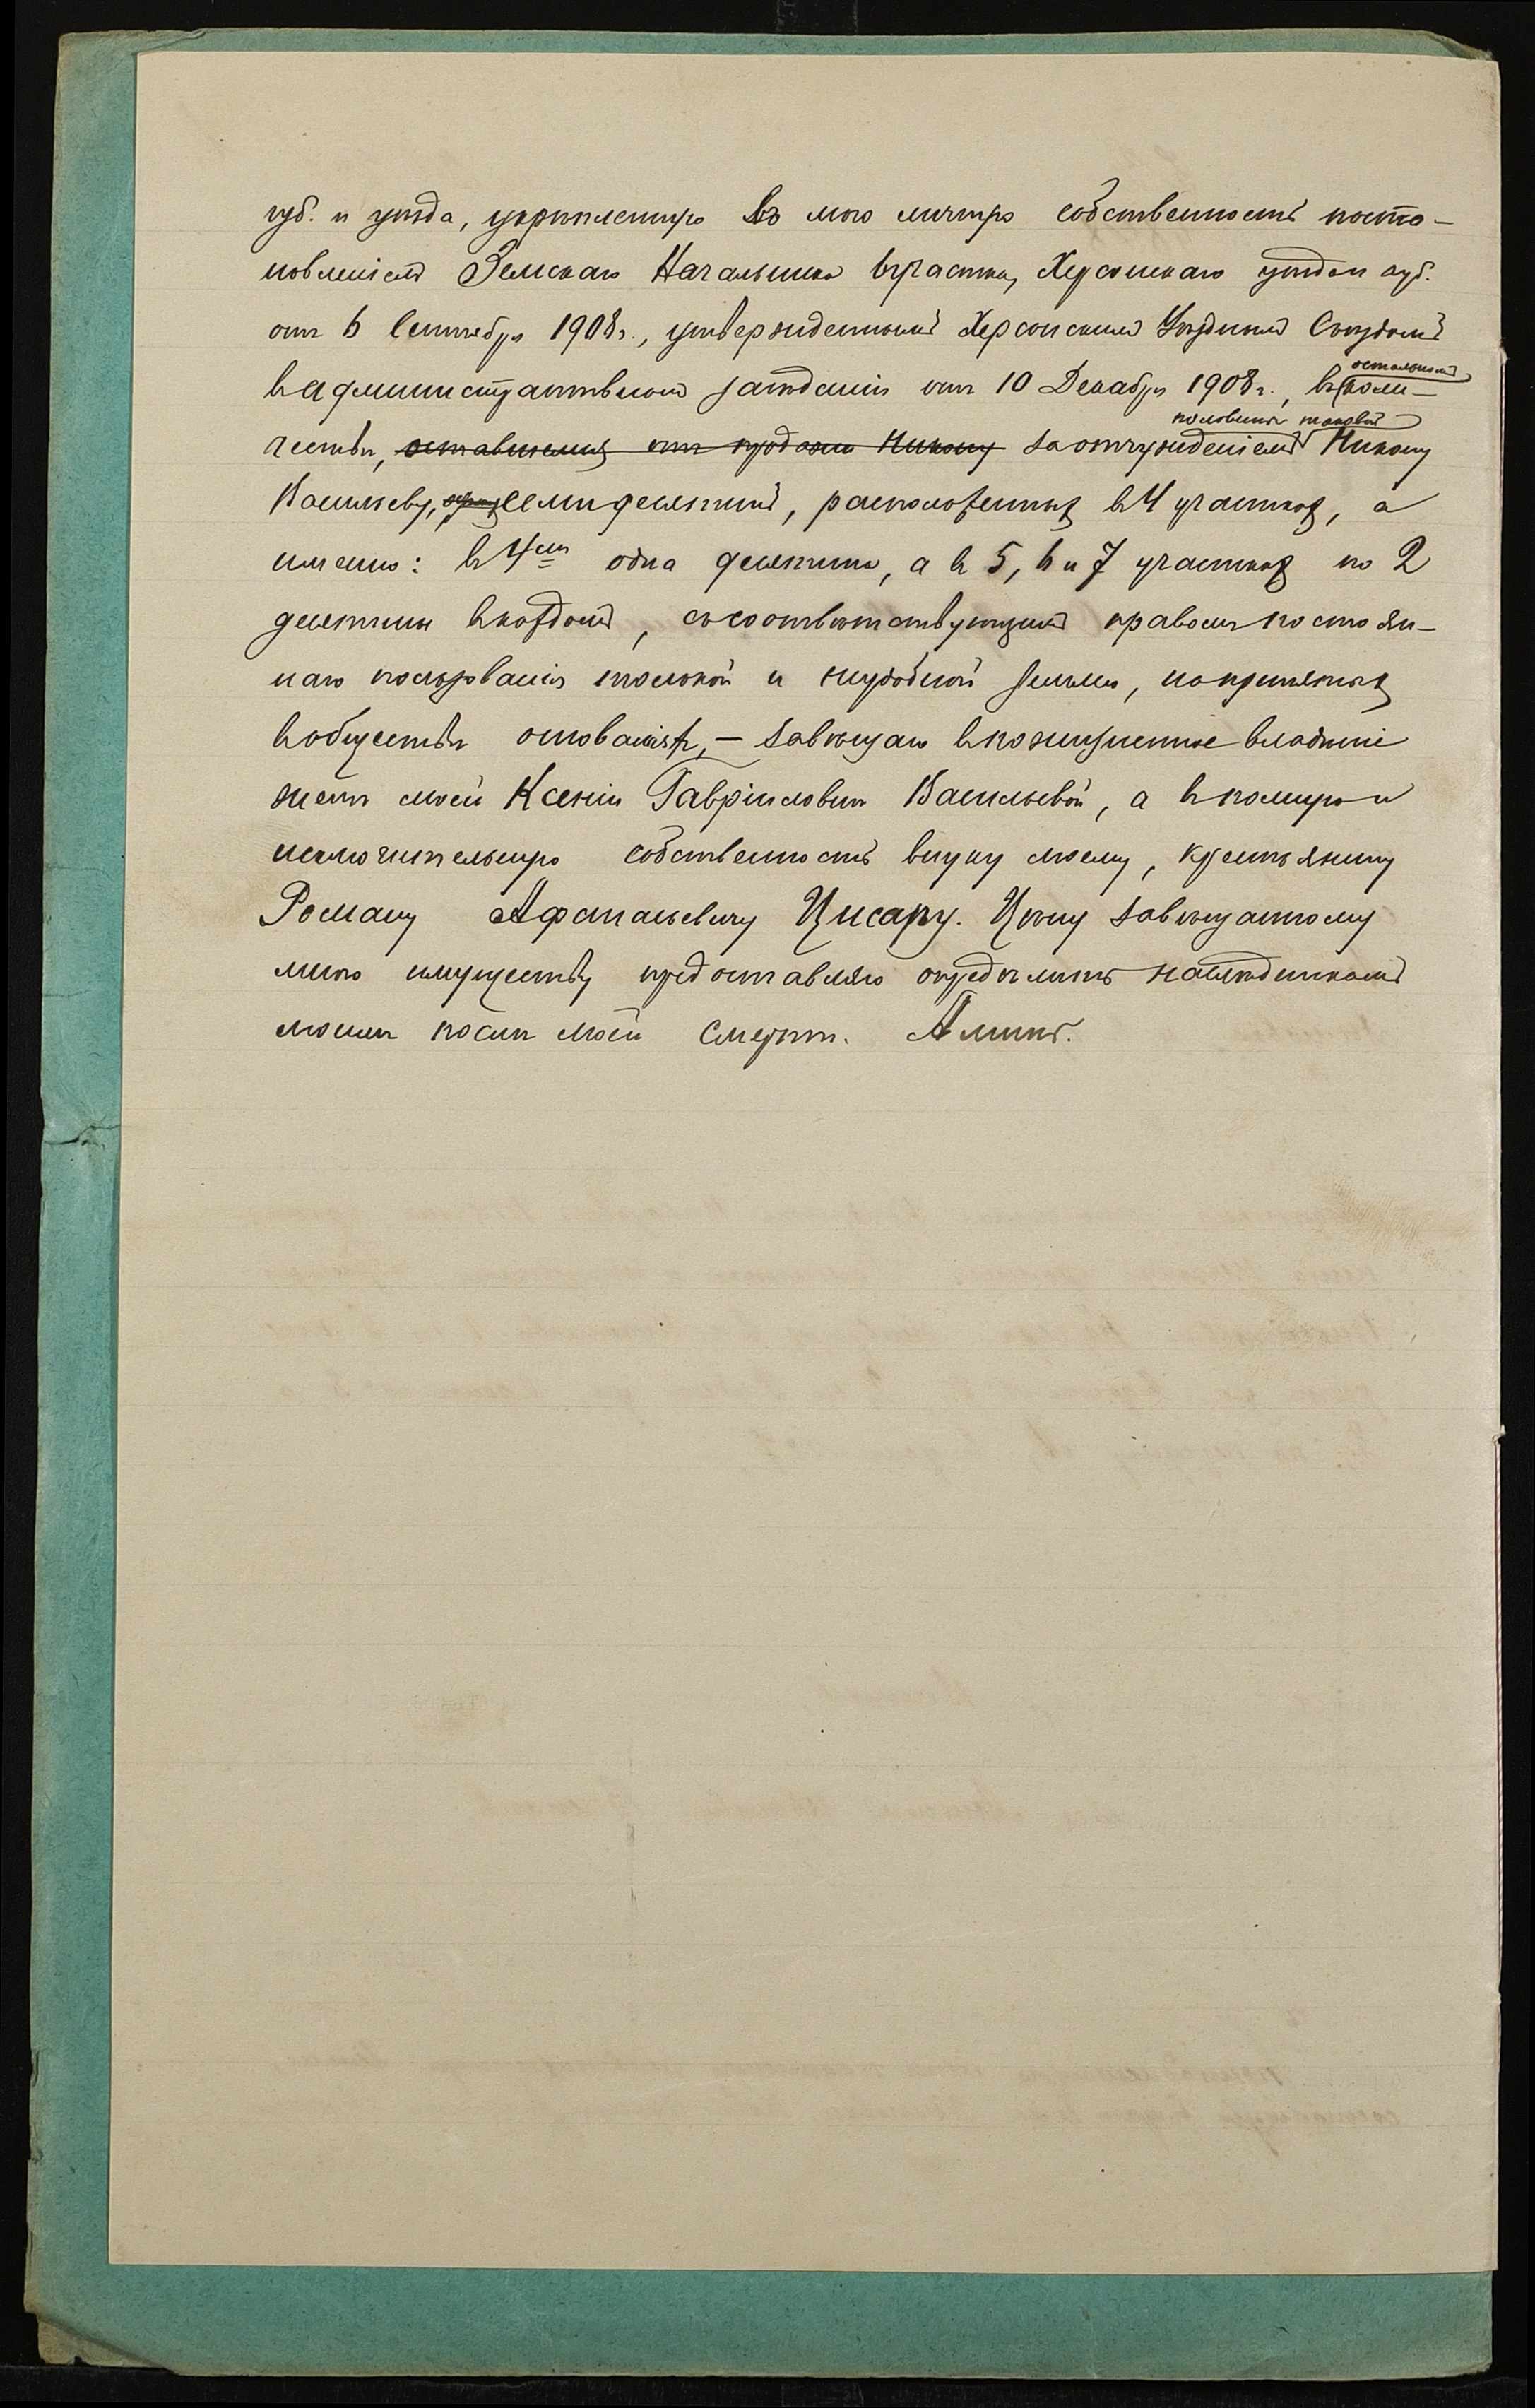 губ. и уѣзда, укрѣпленную въ мою личную собственность поста-
новленіемъ Земскаго Начальника 6 участка, Херсонскаго уѣзда и губ.
отъ 6 Сентября 1908 г., утвержденнымъ Херсонскимъ Уѣзднымъ Съѣздомъ
въ административномъ засѣданіи отъ 10 Декабря 1908 г., въ остальномъ коли-
чествѣ, оставшемся отъ продажи Никону за отчужденіемъ половины таковой Никону
Васильеву, семи десятинъ, расположенныхъ въ 4 участкахъ, а
именно: въ 4омъ одна десятина, а въ 5, 6 и 7 участкахъ по 2
десятины въ каждомъ, съ соотвѣтствующимъ правомъ постоян-
наго пользованія толокой и неудобной землею, на принятыхъ
въ обществѣ основаніяхъ, — завѣщаю въ пожизненное владѣніе
женѣ моей Ксеніи Гавріиловнѣ Васильевой, а въ полную и
исключительную собственность внуку моему, крестьянину
Роману Афанасьевичу Цисарь. Цѣну завѣщанному
мною имуществу предоставляю опредѣлить наслѣдникамъ
моимъ послѣ моей смерти. Аминь.